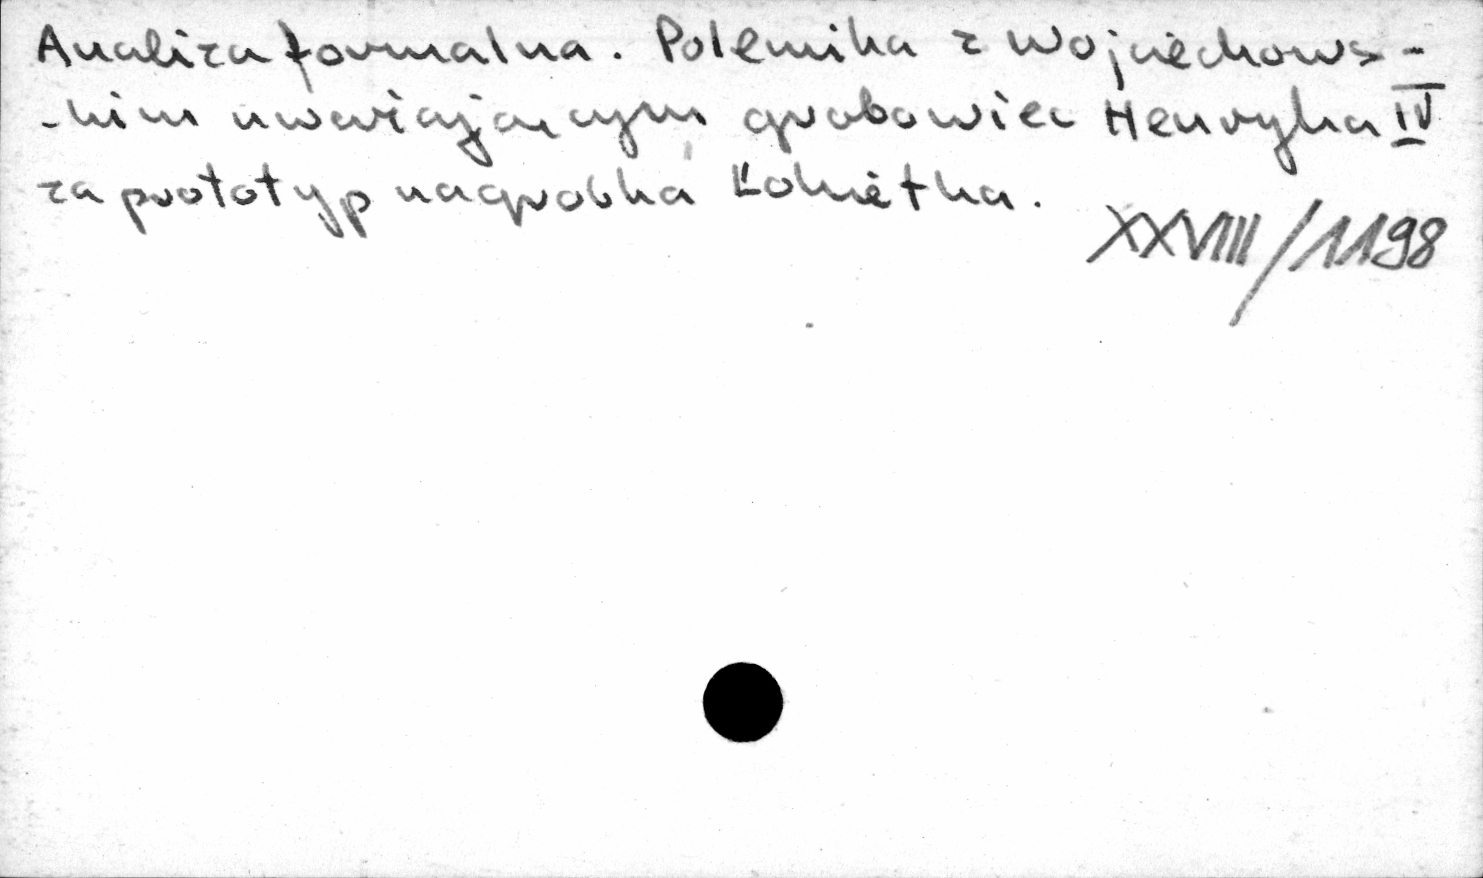 Analiza formalna. Polemika z Wojciechows-
-kim uważającym grobowiec Henryka IV
za prototyp nagrobka Łokietka.
XXVIII/1198